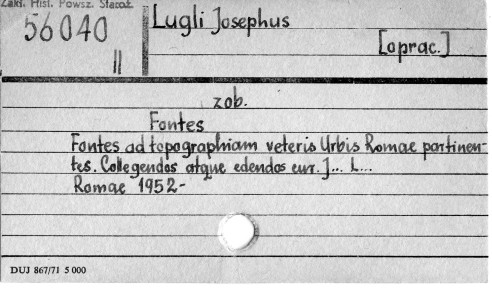 Zakł. Hist. Powsz. Staroż.
56040
II
Lugli Josephus
[oprac.]
zob.
Fontes
Fontes ad topographiam veteris Urbis Romae partinen-
tes. Collegendos atque edendos cur. J... L...
Romae 1952-
DUJ 867/71 5 000